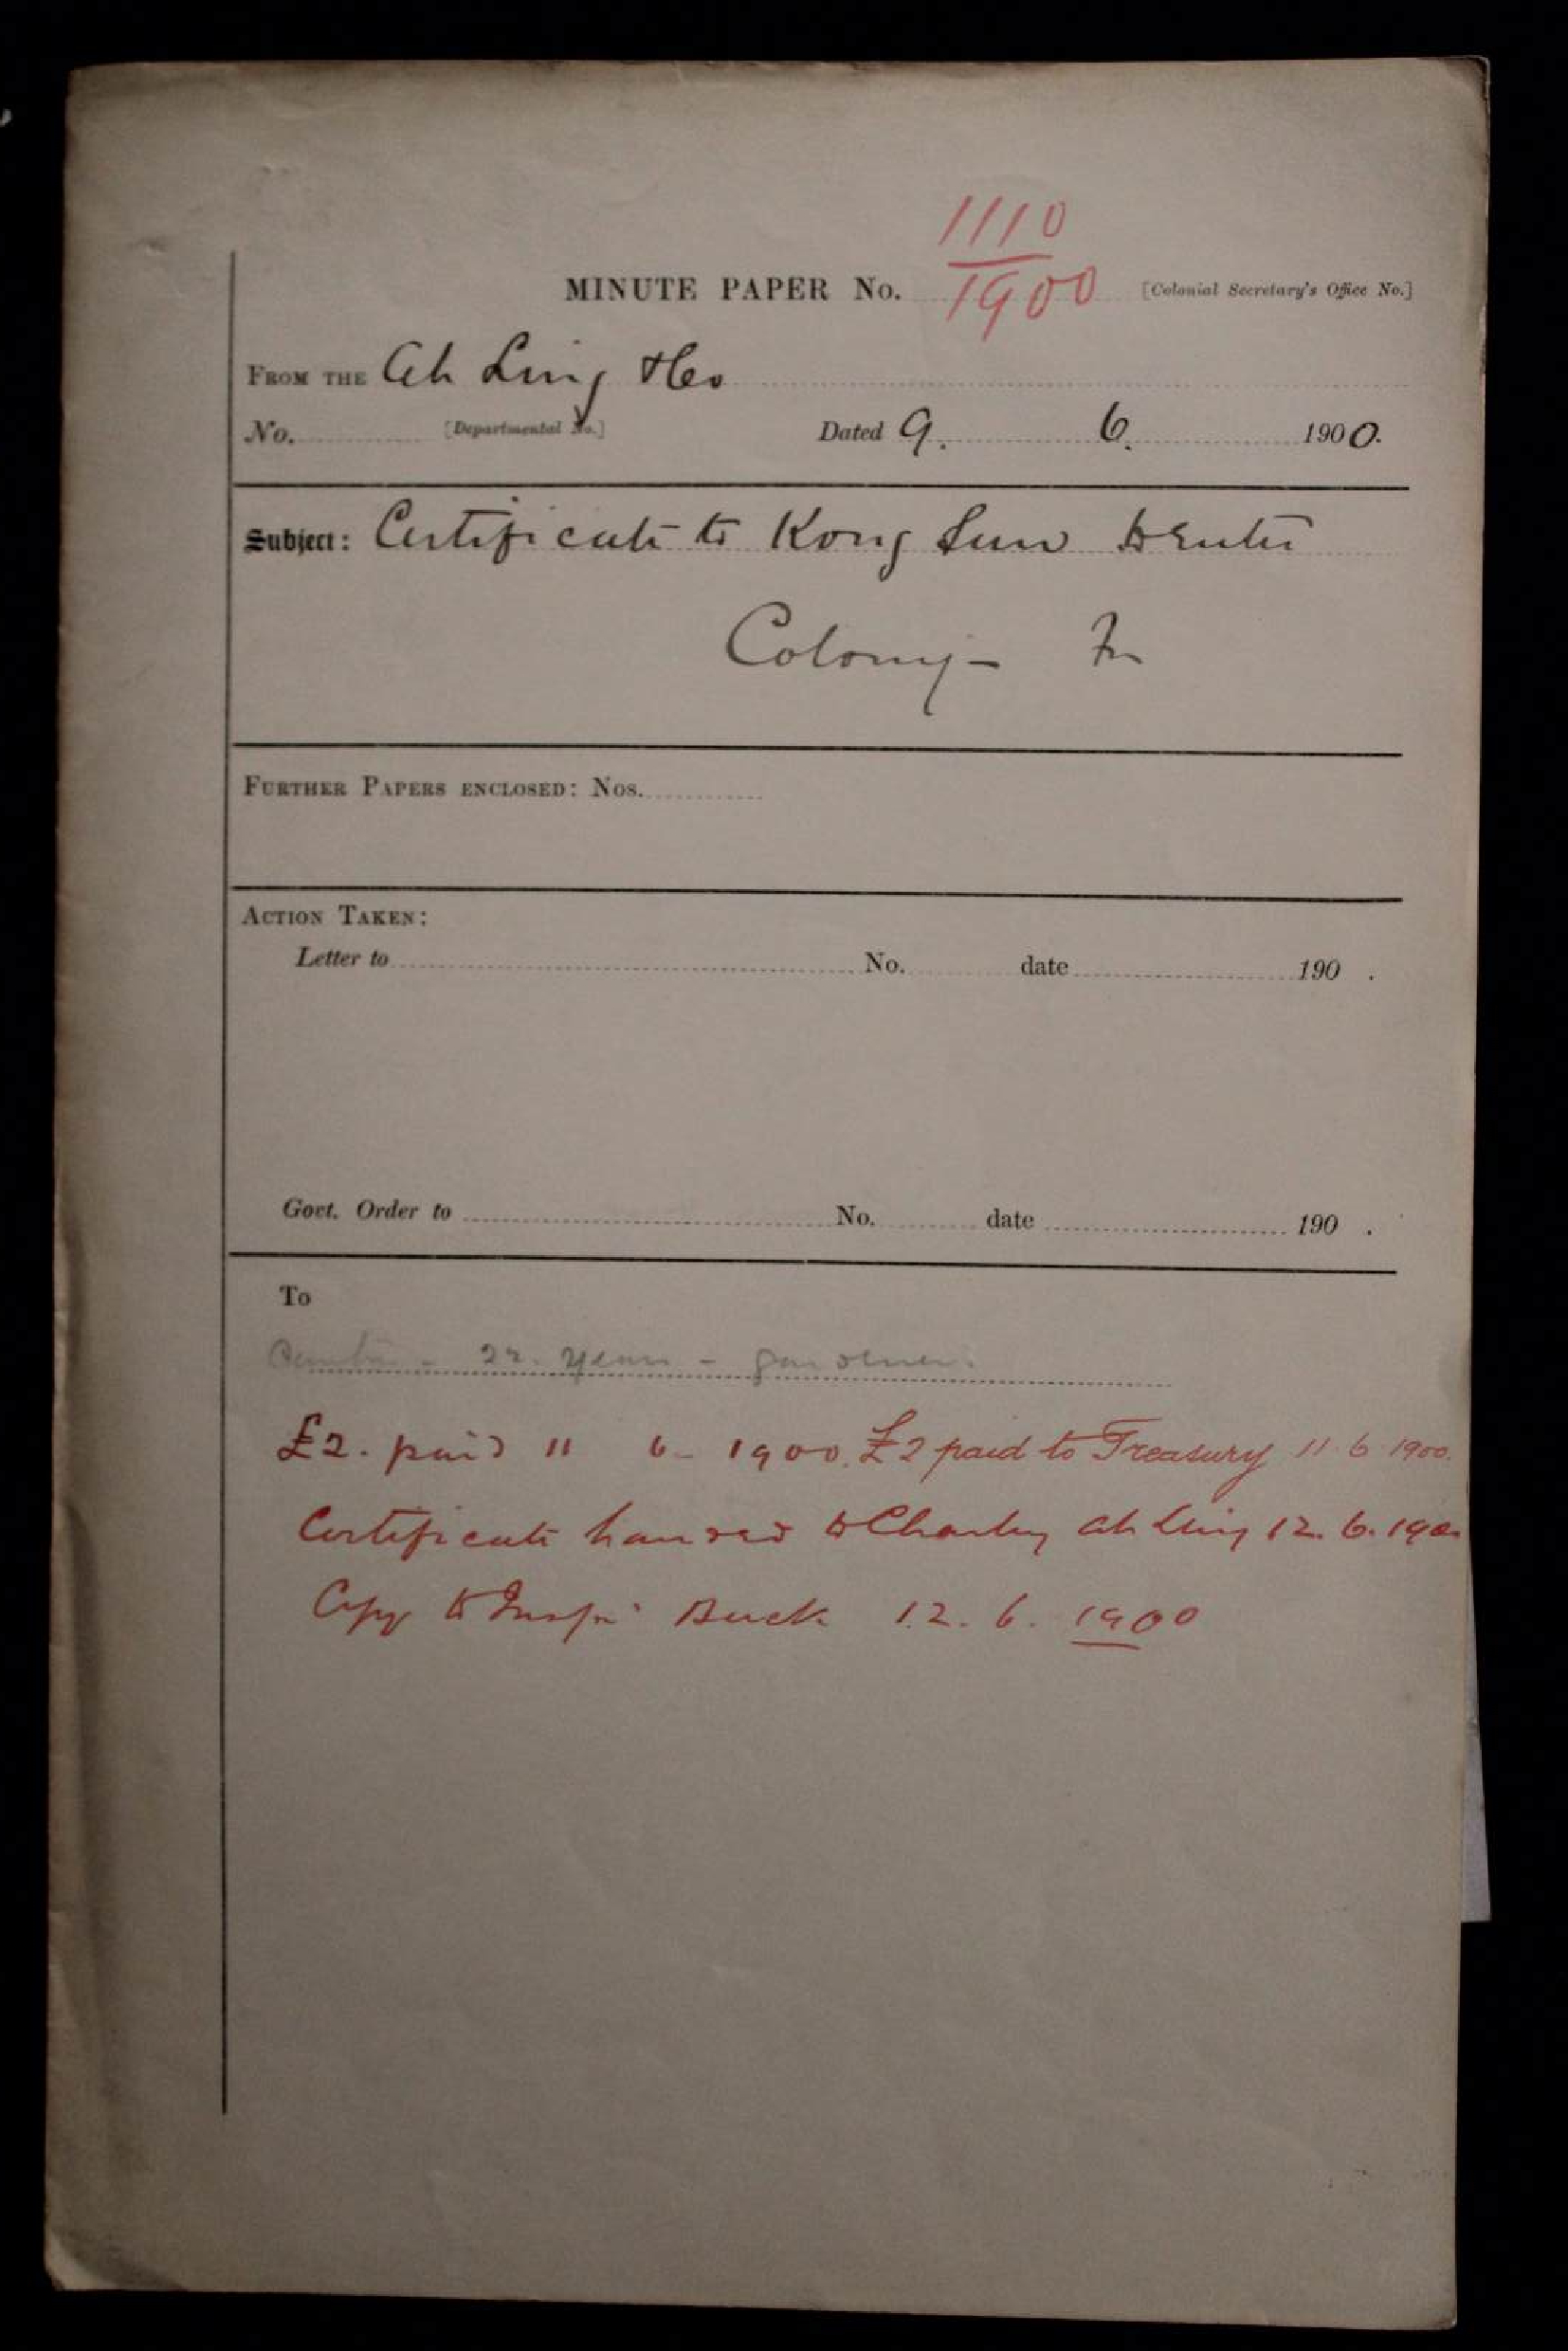 1110
MINUTE PAPER No. 1900 [Colonial Secretary's Office No.]
FROM THE Ah Ling & Co
No. [Departmental No.] Dated 9. 6. 1900.
Subject: Certificate to Kong Sun to Enter
Colony - For
FURTHER PAPERS ENCLOSED: Nos.
ACTION TAKEN:
Letter to No. date 190 .
Govt. Order to No. date 190 .
To
- 22. years - gardener.
£2. paid 11 6 - 1900. £2 paid to Treasury 11 6 1900.
Certificate handed to Charley Ah Ling 12. 6. 1900
Copy to Inspr Buck 12. 6. 1900